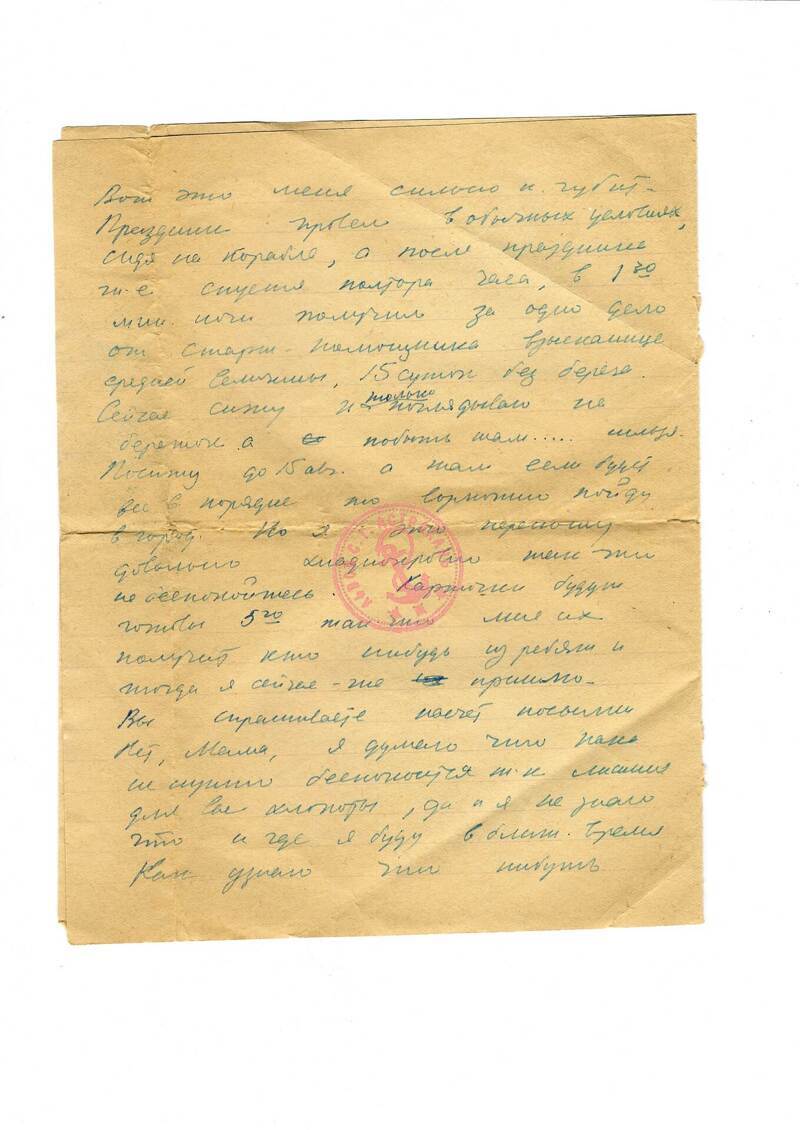 Вот это меня сильно и губит.
Праздник провел в обычных условиях,
сидя на корабле, а после праздника
т.е спустя полтора часа, в 1 30
мин. ночи получил за одно дело
от старш. помощника взыскание
средней величины, 15 суток без берега.
Сейчас сижу и только поглядываю на
бережок а побыть там..... нельзя.
Посижу до 15 авг. а там если будет
все в порядке то законно пойду
в город. Но я это переношу
довольно хладнокровно так что
не беспокойтесь. Карточки будут
готовы 5го так что мне их
получит кто нибудь из ребят и
тогда я сейчас-же пришлю.
Вы спрашиваете насчет посылки
Нет, Мама, я думаю что пока
не нужно беспокоится т-к лишния
для вас хлопоты, да и я не знаю
что и где я буду в ближ. время
Как узнаю что нибуть